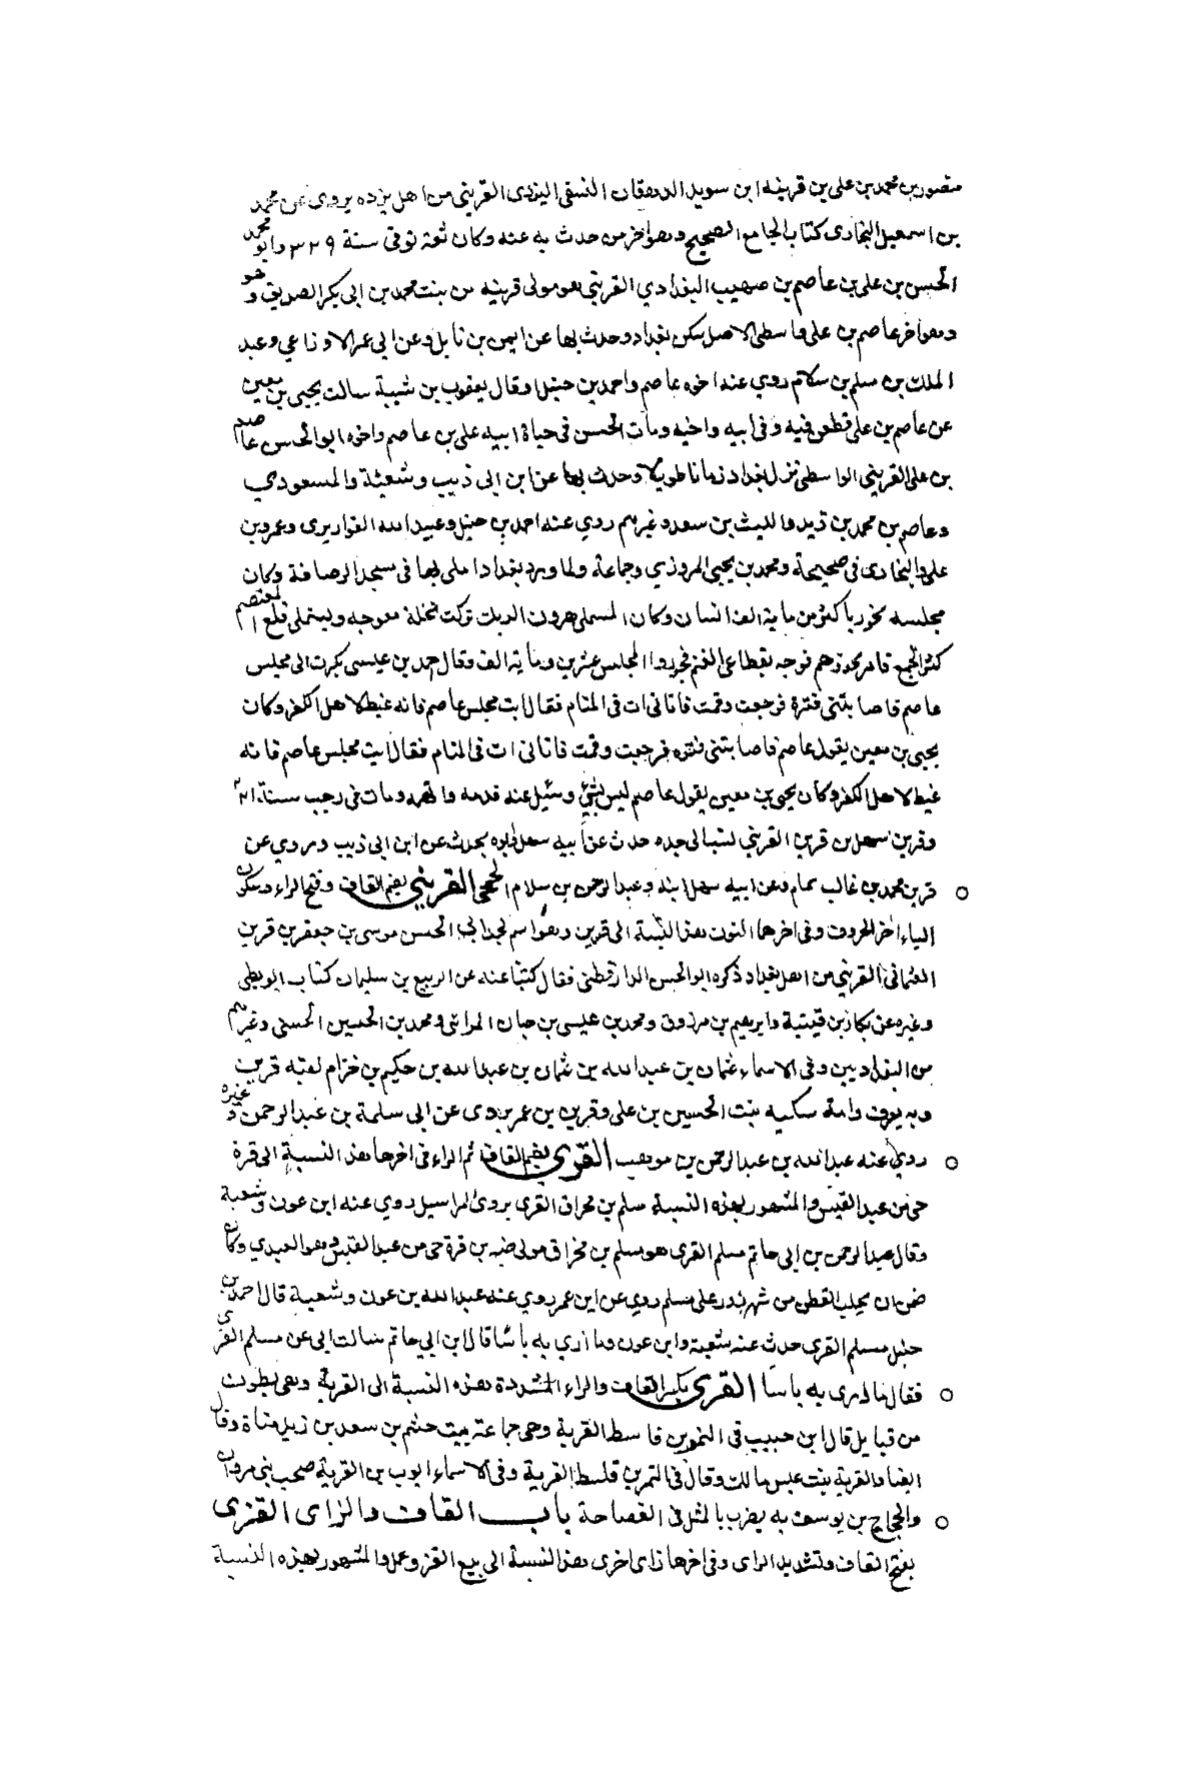 منصور بن محمد بن على بن قرينه ابن سويد الدهقان النسفى البزدى القرينى من اهل بزده يروى عن محمد
بن اسمعيل البخارى كتاب الجامع الصحيح وهو اخر من حدث به عنه وكان ثقة توفى سنة ٣٢٩ وابو محمد
الحسن بن على بن عاصم بن صهيب البغدادي القرينى هو مولى قرينه من بنت محمد بن ابى بكر الصديق
وهو اخر عاصم بن على واسطى الاصل سكن بغداد وحدث بها عن ايمن بن نابل وعن ابى عمر الاوزاعي وعبد
الملك بن مسلم بن سلام روي عنه اخوه عاصم واحمد بن حنبل وقال يعقوب بن شيبة سالت يحيى بن معين
عن عاصم بن على قطعن فيه وفى ابيه واخيه ومات الحسن فى حياة ابيه على بن عاصم واخوه ابو الحسن عاصم
بن على القرينى الواسطى نزل بغداد زمانا طويلا وحدث بها عن ابن ابى ذيب وشعبة والمسعودي
وعاصم بن محمد بن زيد والليث بن سعد وغيرهم روي عنه احمد بن حنبل وعبيد الله القواريرى وعمرو بن
على والبخارى فى صحيحه ومحمد بن يحيى المروزي وجماعة ولما ورد بغداد املى بها فى مسجد الرصافة وكان
مجلسه يحزر باكثر من ماية الف انسان وكان المستملى هرون الديك تركت نخلة معوجه ويستملى المعتصم
كثر الجمع فامر بحزرهم فوجه بقطاعى الغنم فحزروا المجلس عشرين وماية الف وقال احمد بن عيسى بكرت الى مجلس
عاصم فاصابتنى فترة فرجعت ونمت فاتانى ات فى المنام فقال ايت مجلس عاصم فانه غيظ لاهل الكفر وكان
يحيى بن معين يقول عاصم فاصابتنى فتره فرجعت ونمت فاتانى ات فى المنام فقال ايت مجلس عاصم فانه
غيظ لاهل الكفر وكان يحيى بن معين يقول عاصم ليس بشيء وسئل عنه فذمه واتهمه ومات فى رجب سنة
وقرين سهل بن قرين القرينى نسب الى جده حدث عن ابيه سهل وابوه يحدث عن ابن ابى ذيب وروي عن
قرين محمد بن غالب تمام وعن ابيه سهل ابنه وعبد الرحمن بن سلام الجمحى القرينى بضم القاف وفتح الراء وسكون
الياء اخر الحروف وفى اخرها النون هذه النسبة الى قرين وهو اسم لجد ابى الحسن موسى بن جعفر بن قرين
العثمانى القرينى من اهل بغداد ذكره ابو الحسن الدارقطنى فقال كتبنا عنه عن الربيع بن سليمان كتاب البويطى
وغيره عن بكار بن قتيبة وابرهيم بن مرزوق ومحمد بن عيسى بن حيان المدائنى ومحمد بن الحسين الحسنى وغيرهم
من البغداديين وفى الاسماء عثمان بن عبد الله بن عثمان بن عبد الله بن حكيم بن حزام لقبه قرين
وبه يعرف وامه سكينه بنت الحسين بن على وقرين بن عمر يروى عن ابى سلمة بن عبد الرحمن وغيره
روي عنه عبد الله بن عبد الرحمن بن موهب القرى بضم القاف ثم الراء فى اخرها هذه النسبة الى قرة
حى من عبد القيس والمشهور بهذه النسبة مسلم بن مخراق القرى يروى المراسيل روي عنه ابن عون وشعبة
وقال عبد الرحمن بن ابى حاتم مسلم القرى هو مسلم بن مخراق مولى ضبه بن قرة حى من عبد القيس وهو العبدي وكان
يجلب القطن من على مسلم روي عن ابن عمر روي عنه عبد الله بن عون وشعبة قال احمد بن
حنبل مسلم القرى حدث عنه شعبة وابن عون وما ازي به باسا قال ابن ابي حاتم سالت ابى عن مسلم القرى
فقال ما ارى به باسا القرى بكسر القاف والراء المشددة هذه النسبة الى القرية وهى بطون
من قبايل قال ابن حبيب فى النمر بن قاسط القرية وهى جماعة بنت جشم بن سعد بن زيد مناة وقال
ايضا والقرية بنت عبس مالك وقال فى النمر بن قاسط القرية وفى الاسماء ايوب بن القرية صحب بنى مروان
والحجاج بن يوسف به يضرب المثل فى الفصاحة باب القاف والزاى القزى
بفتح القاف وتشديد الزاى وفى اخرها زاى اخرى هذه النسبة الى بيع القز وعمله والمشهور بهذه النسبة